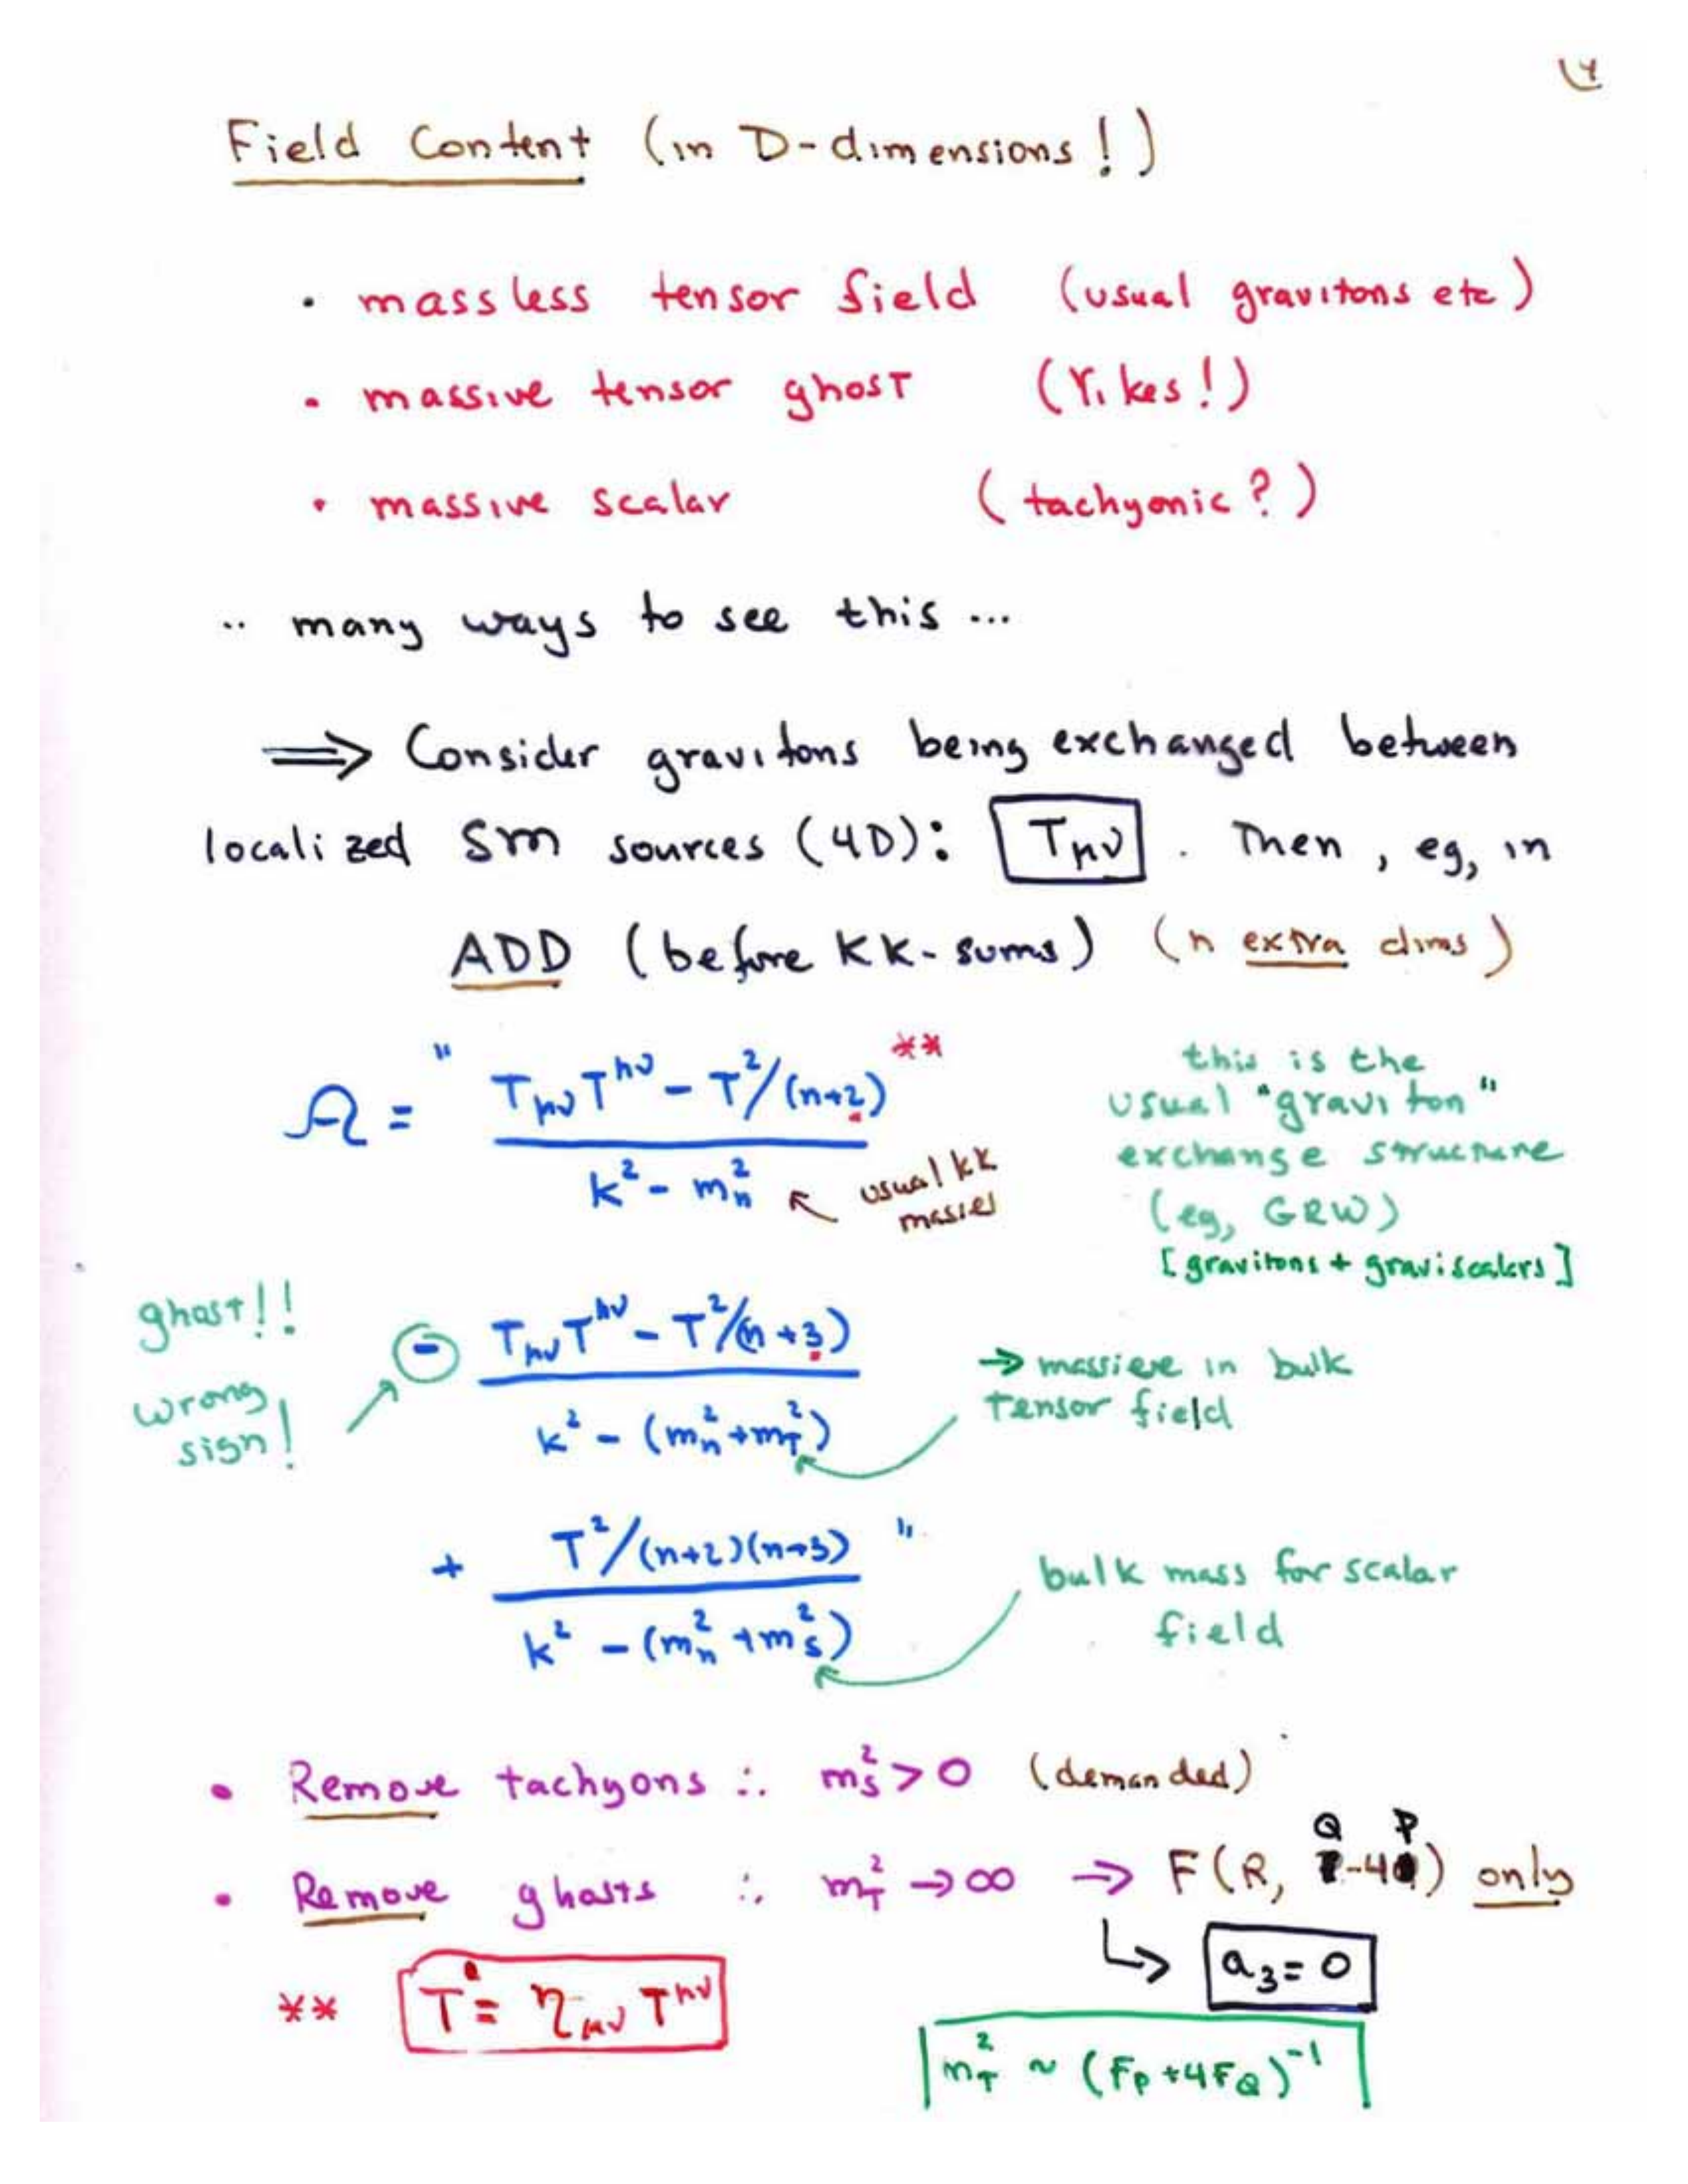 14
Field Content (in D-dimensions!)
• massless tensor field (usual gravitons etc)
• massive tensor ghost (Yikes!)
• massive scalar (tachyonic?)
.. many ways to see this ...
⟹ Consider gravitons being exchanged between
localized SM sources (4D): T_μν . Then, eg, in
ADD (before KK-sums) (n extra dims)
A = " (T_μν T^μν - T²/(n+2)) / (k² - m_n²) **
usual KK masses
this is the
usual "graviton"
exchange structure
(eg, GRW)
[gravitons + graviscalars]
ghost!!
wrong
sign!
- (T_μν T^μν - T²/(n+3)) / (k² - (m_n² + m_T²))
→ massive in bulk
tensor field
+ (T²/(n+2)(n+3)) / (k² - (m_n² + m_s²)) "
bulk mass for scalar
field
• Remove tachyons ∴ m_s² > 0 (demanded)
• Remove ghosts ∴ m_T² → ∞ → F(R, Q-4P) only
↳ a₃ = 0
** T = η_μν T^μν
m_T² ~ (F_P + 4F_Q)^-1